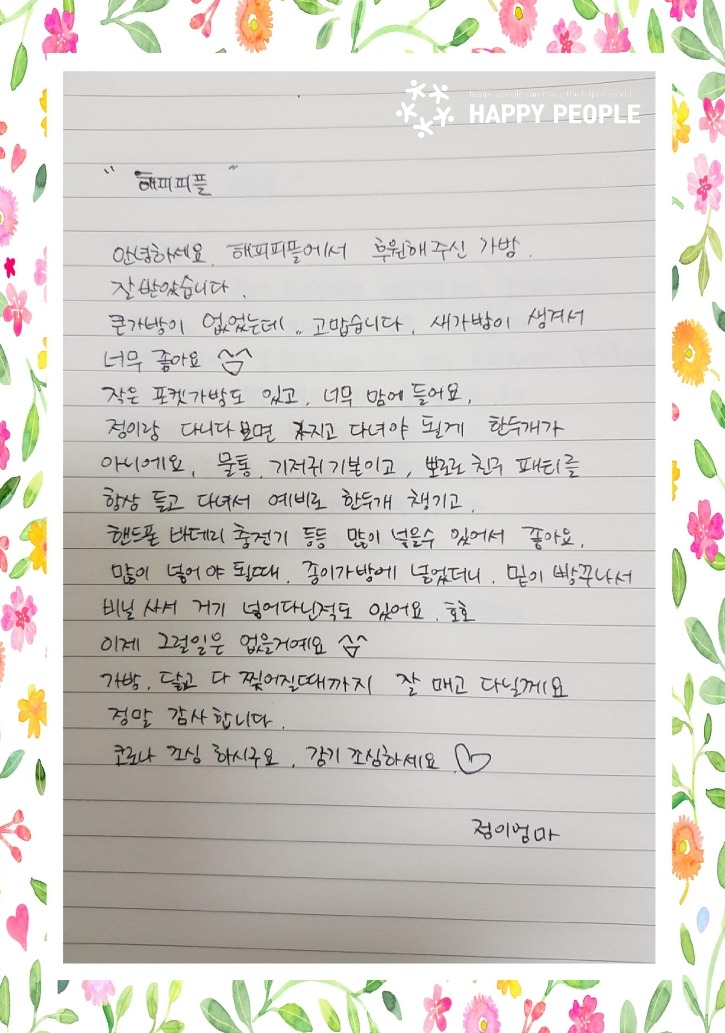 HAPPY PEOPLE
" 해피피플 "
안녕하세요. 해피피플에서 후원해주신 가방.
잘받았습니다.
큰가방이 없었는데.. 고맙습니다. 새가방이 생겨서
너무 좋아요 ^^
작은 포켓가방도 있고, 너무 맘에 들어요,
정이랑 다니다보면 가지고 다녀야 될게 한두개가
아니에요, 물통, 기저귀기본이고, 뽀로로 친구 패티를
항상 들고 다녀서 예비로 한두개 챙기고.
핸드폰 바데리 충전기 등등 많이 넣을수 있어서 좋아요,
많이 넣어야 될때, 종이가방에 넣었더니, 밑이 빵꾸나서
비닐 사서 거기 넣어다닌적도 있어요. 호호
이제 그런일은 없을거에요 ^^
가방, 닳고 다 찢어질때까지 잘 매고 다닐께요
정말 감사합니다.
코로나 조심 하시구요, 감기 조심하세요. ♡
정이엄마